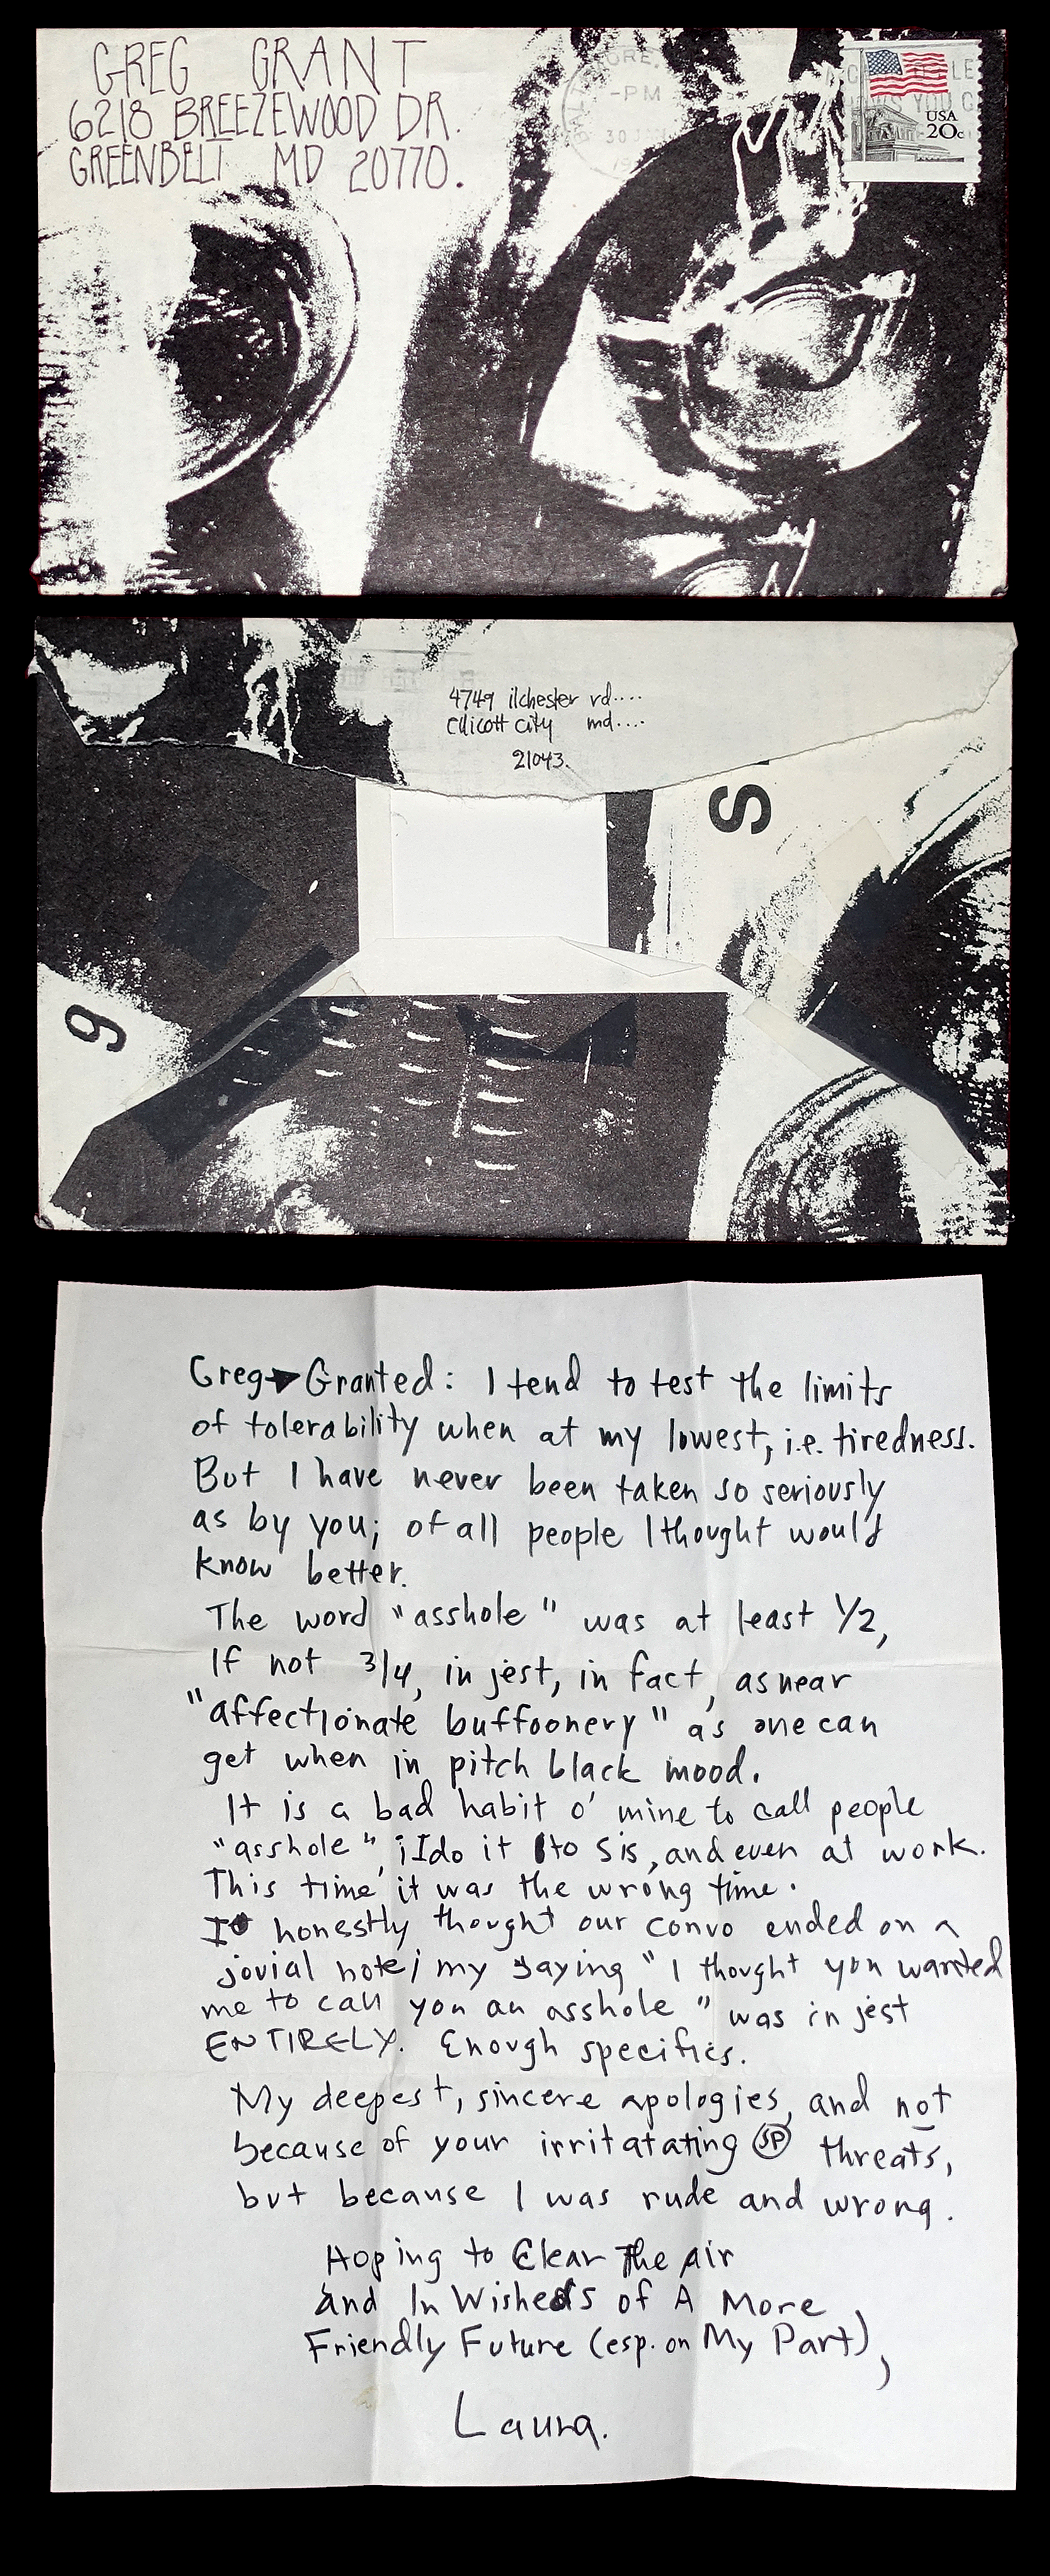 GREG GRANT
6218 BREEZEWOOD DR.
GREENBELT MD 20770.
MORE,
-PM
30
USA
20c
LE
YOU C
4749 ilchester rd....
Ellicott City md....
21043.
S
9
Greg➔Granted: I tend to test the limits
of tolerability when at my lowest, i.e. tiredness.
But I have never been taken so seriously
as by you; of all people I thought would
know better.
The word "asshole" was at least 1/2,
If not 3/4, in jest, in fact, as near
"affectionate buffoonery" as one can
get when in pitch black mood.
It is a bad habit o' mine to call people
"asshole"; I do it to Sis, and even at work.
This time it was the wrong time.
I honestly thought our convo ended on a
jovial note; my saying "I thought you wanted
me to call you an asshole" was in jest
ENTIRELY. Enough specifics.
My deepest, sincere apologies, and not
because of your irritatating SP threats,
but because I was rude and wrong.
Hoping to Clear The Air
And In Wishes of A More
Friendly Future (esp. on My Part),
Laura.